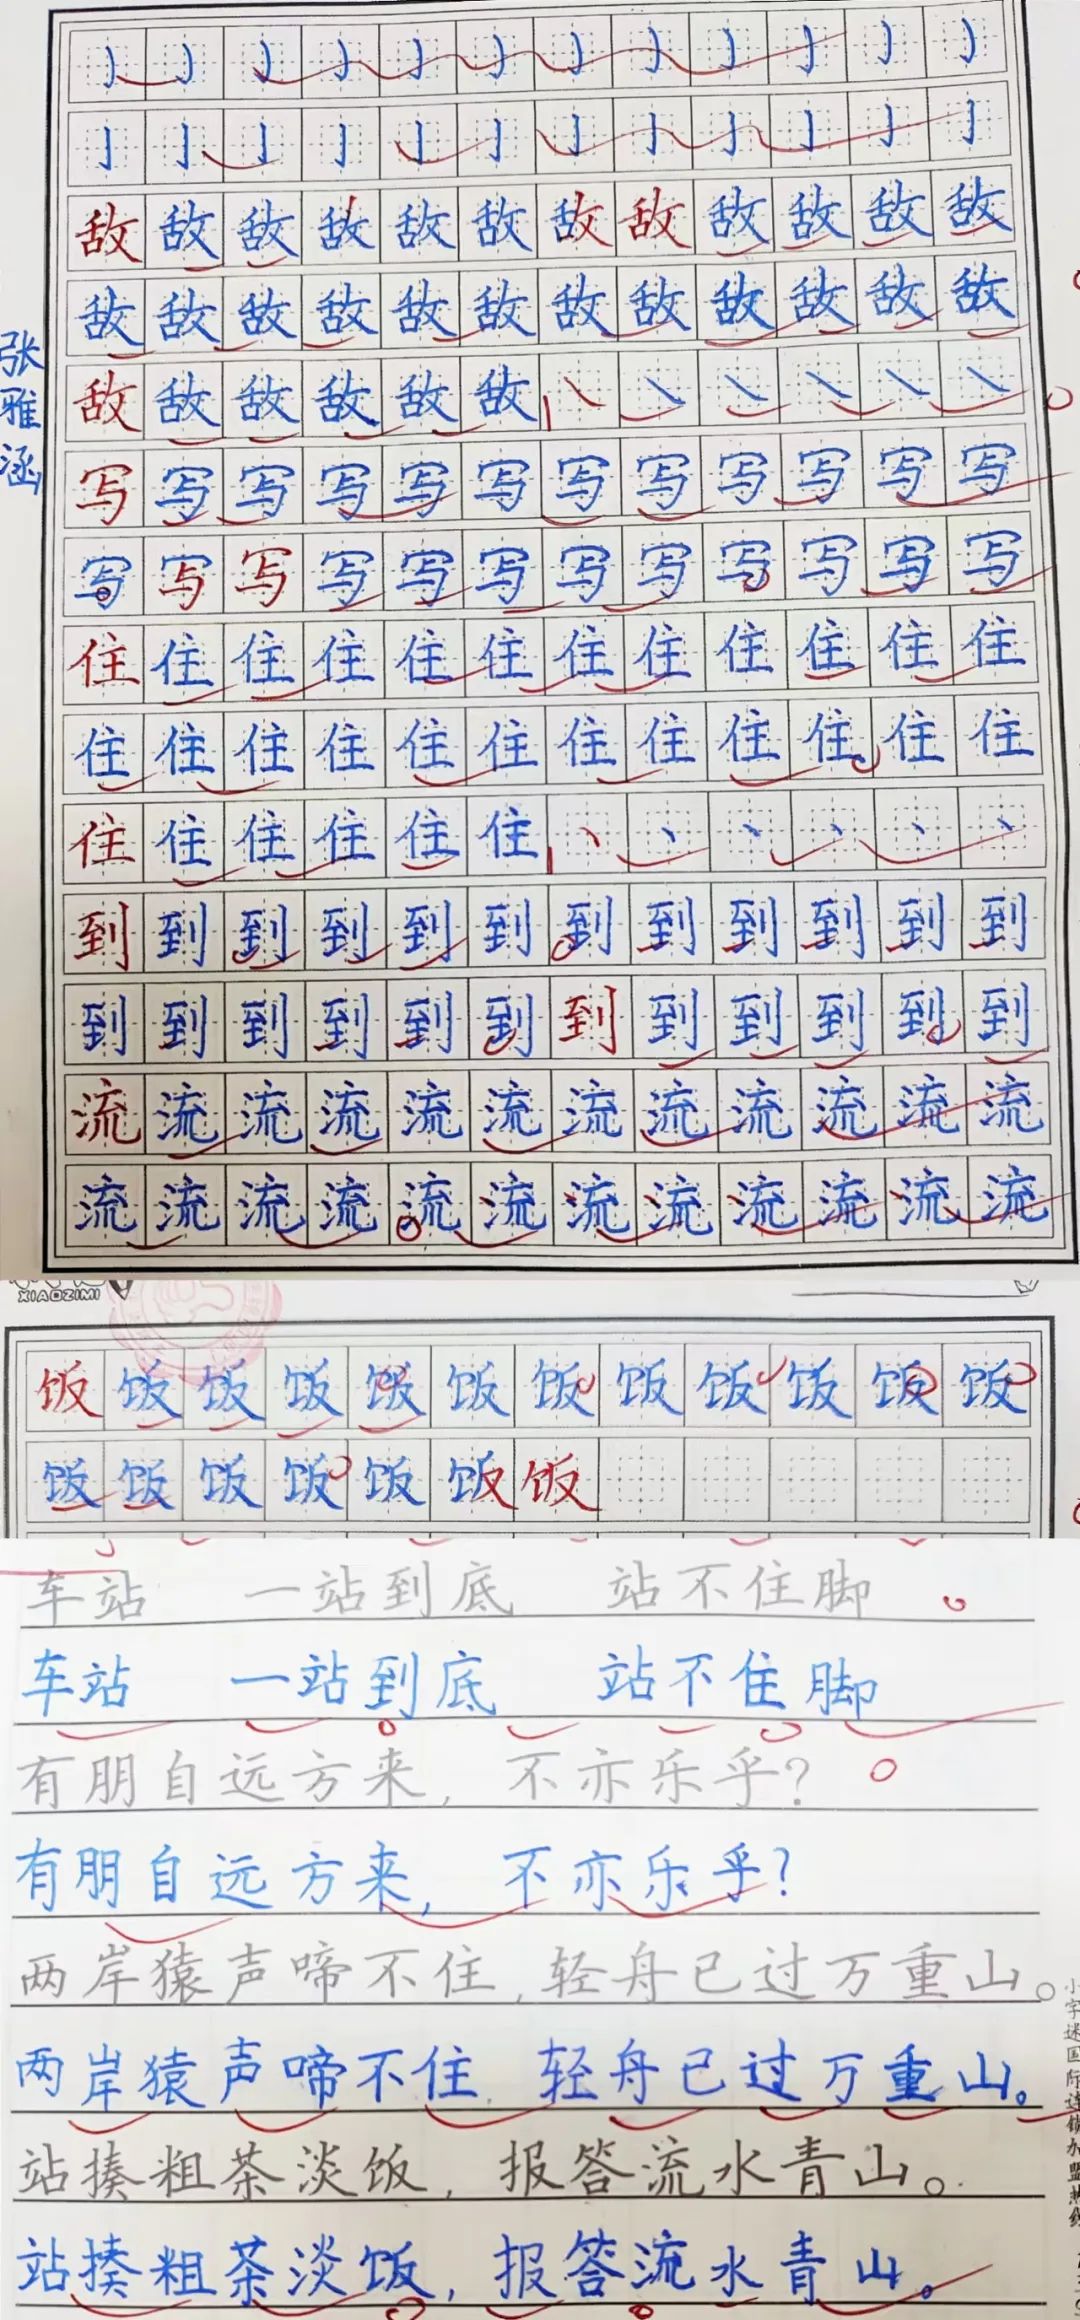 亅亅亅亅亅亅亅亅亅亅亅亅
亅亅亅亅亅亅亅亅亅亅亅亅
敌敌敌敌敌敌敌敌敌敌敌敌
敌敌敌敌敌敌敌敌敌敌敌敌
张雅涵
敌敌敌敌敌敌丶丶丶丶丶丶
写写写写写写写写写写写写
写写写写写写写写写写写写
住住住住住住住住住住住住
住住住住住住住住住住住住
住住住住住住丶丶丶丶丶丶
到到到到到到到到到到到到
到到到到到到到到到到到到
流流流流流流流流流流流流
流流流流流流流流流流流流
XIAOZIMI
饭饭饭饭饭饭饭饭饭饭饭饭
饭饭饭饭饭饭饭
车站 一站到底 站不住脚
车站 一站到底 站不住脚
有朋自远方来，不亦乐乎？
有朋自远方来，不亦乐乎？
两岸猿声啼不住，轻舟已过万重山。
两岸猿声啼不住，轻舟已过万重山。
站揍粗茶淡饭，报答流水青山。
站揍粗茶淡饭，报答流水青山。
小字迷国际连锁加盟热线